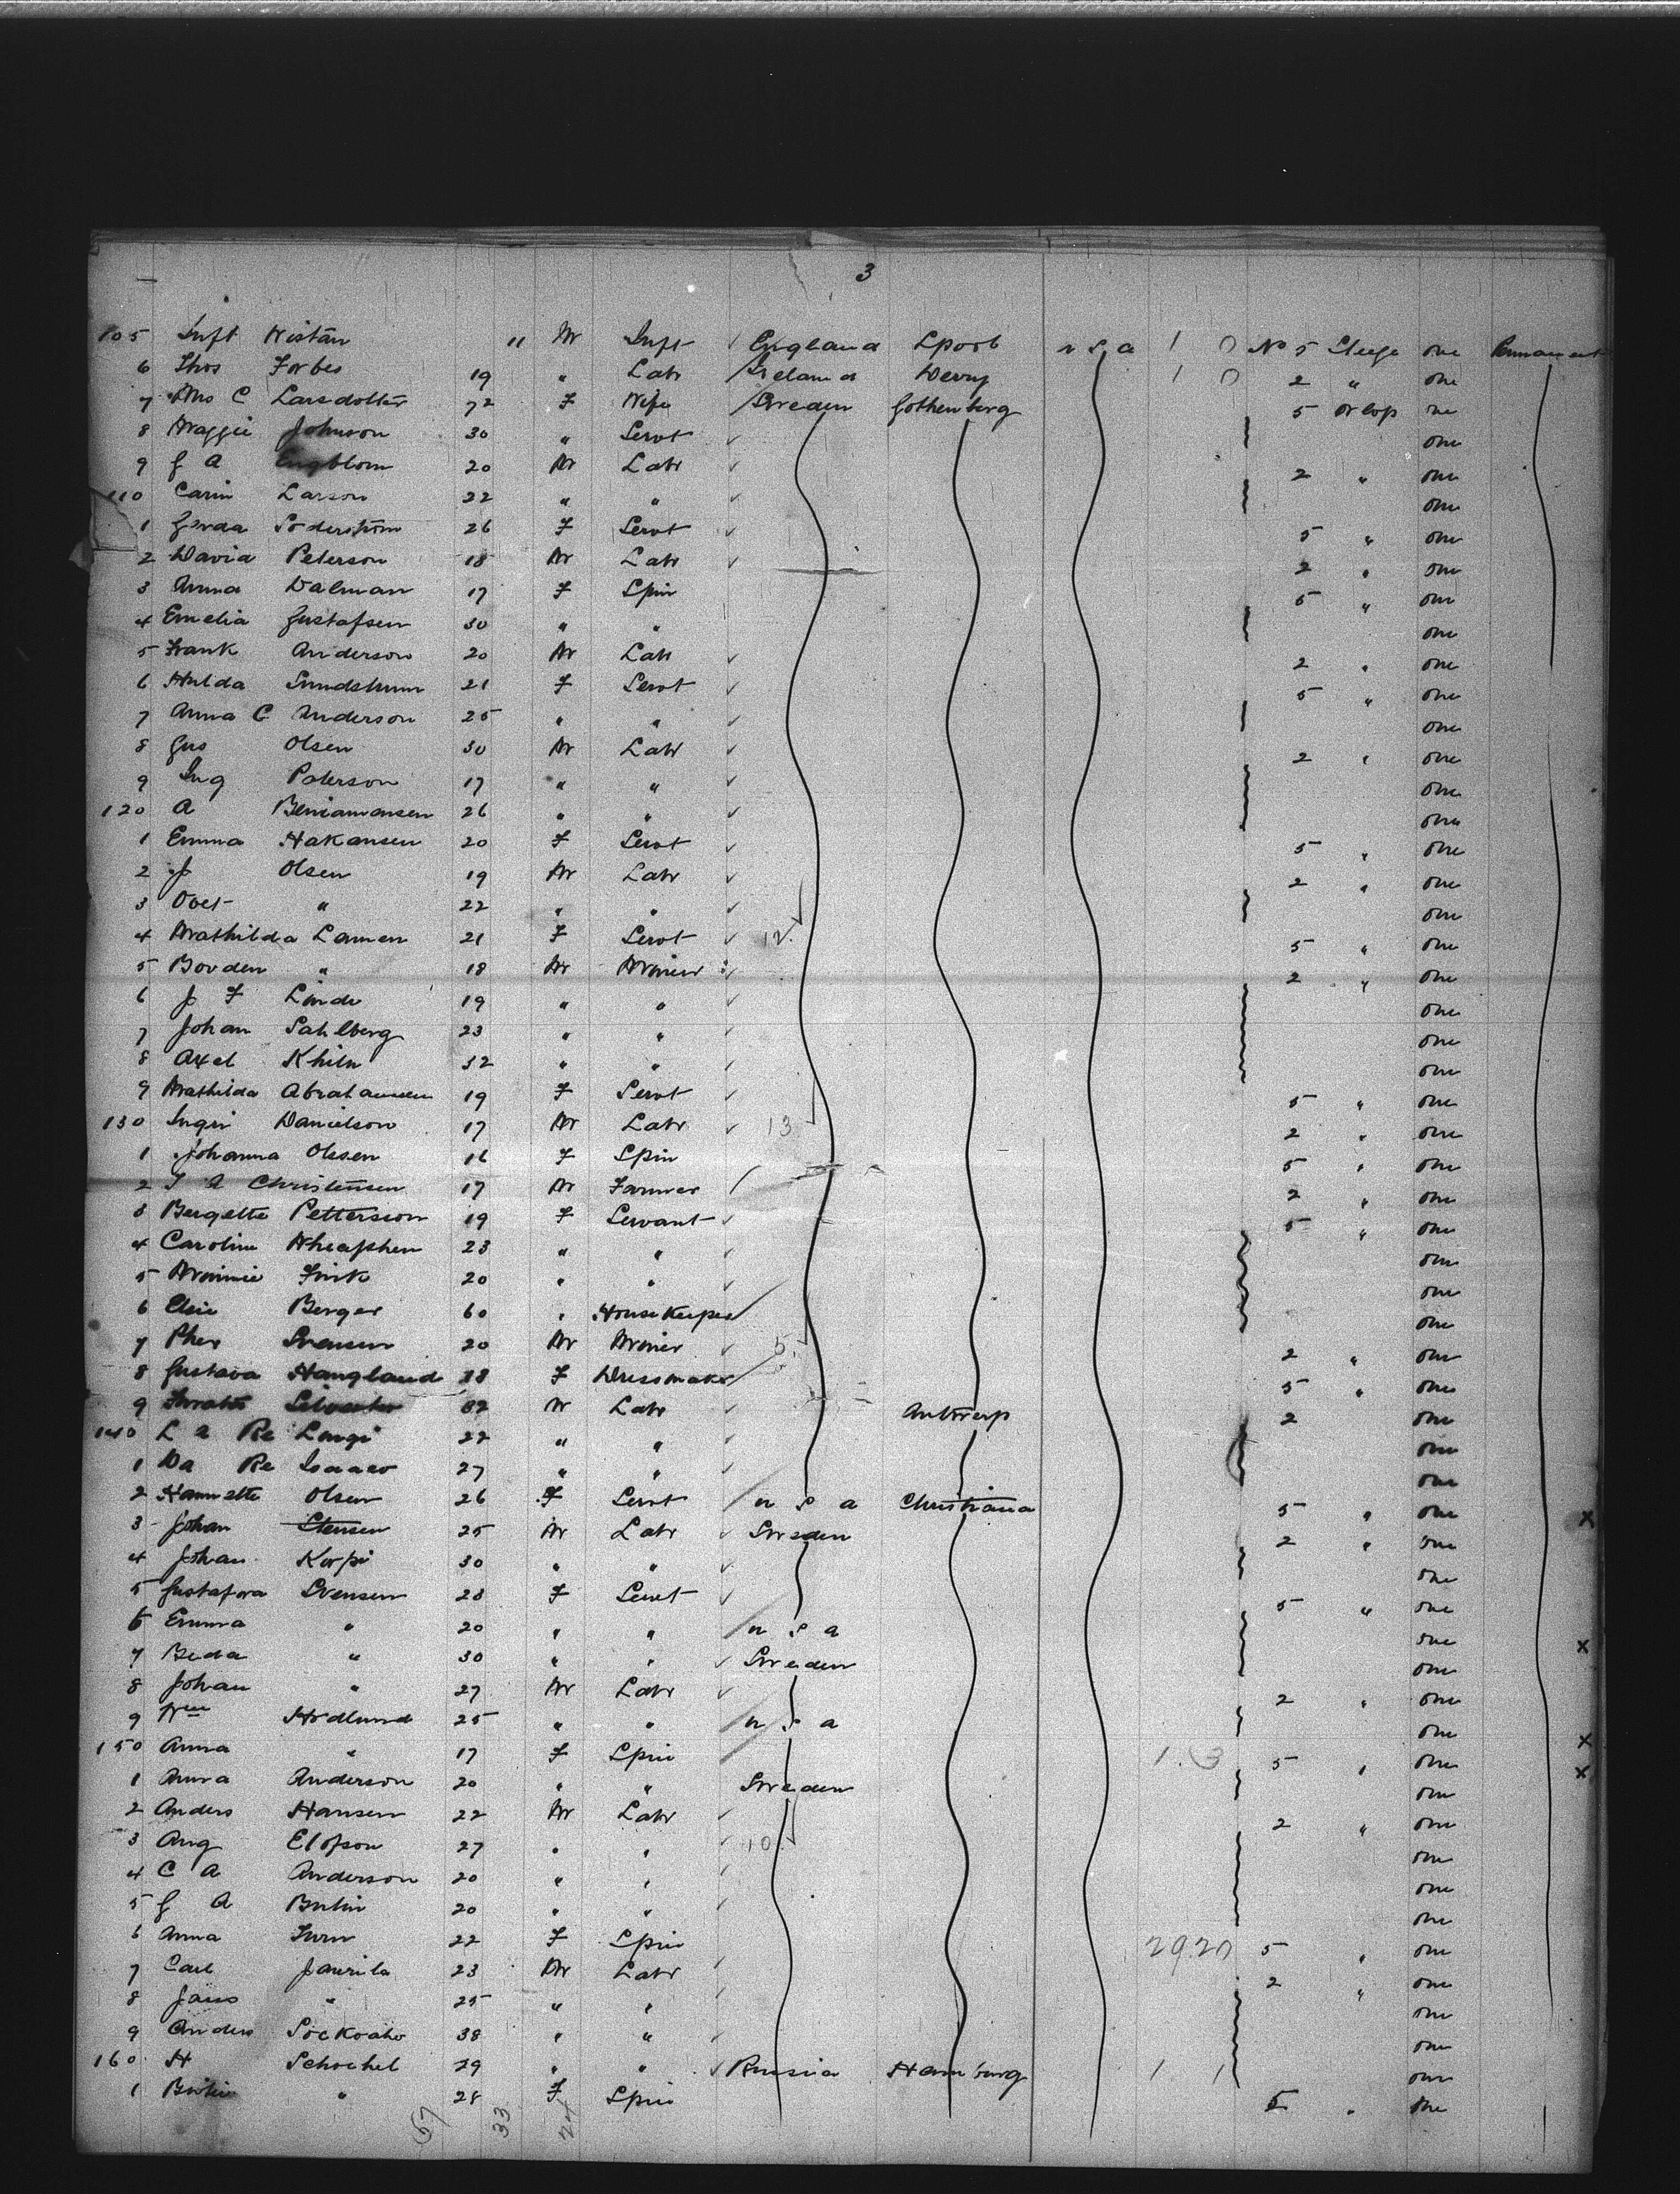 3
105 Inft Nistan " M Inft England Lpool U S A 1 0 No 5 Steege one Permanent
6 Thos Forbes 19 " Labr Ireland Derry 1 0 2 " one
7 Mrs C Larsdotter 72 F Wife Sweden Gothenberg 5 Orlop one
8 Maggie Johnson 30 " Servt one
9 G A Engblom 20 M Labr 2 " one
110 Carin Larson 22 " " one
1 Gerda Soderstrom 26 F Servt 5 " one
2 David Peterson 18 M Labr 2 " one
3 Anna Dalman 17 F Spin 5 " one
4 Emelia Gustafsen 30 " " one
5 Frank Anderson 20 M Labr 2 " one
6 Hulda Sundstrum 21 F Servt 5 " one
7 Anna C Anderson 25 " " one
8 Gus Olsen 30 M Labr 2 " one
9 Ing Peterson 17 " " one
120 A Beniamansen 26 " " one
1 Emma Hakansen 20 F Servt 5 " one
2 J Olsen 19 M Labr 2 " one
3 " 22 " " one
4 Mathilda Lamen 21 F Servt 12 5 " one
5 Bovden " 18 M Miner 2 " one
6 J F Linde 19 " " one
7 Johan Sahlberg 23 " " one
8 Axel Khiln 32 " " one
9 Mathilda Abrahamsen 19 F Servt 5 " one
130 Ingri Danielson 17 M Labr 13 2 " one
1 Johanna Olssen 16 F Spin 5 " one
2 A Christensen 17 M Farmer 2 " one
3 Bergette Petterson 19 F Servant 5 " one
4 Caroline 23 " " one
5 Minnie Fink 20 " " one
6 Elsie Berger 60 " Housekeeper one
7 Pher Svensen 20 M Miner 5 2 " one
8 Gustava Haugland 38 F Dressmakr 5 " one
9 32 M Labr Antwerp 2 one
140 L a Re Longi 22 " " one
1 Da Re Isaaco 27 " " one
2 Hannette Olsen 26 F Servt U S A Christiana 5 " one X
3 Johan Stensen 25 M Labr Sweden 2 " one
4 Johan Korpi 30 " " one
5 Gustafova Svensen 28 F Servt 5 " one
6 Emma " 20 " " U S A one X
7 Beda " 30 " " Sweden one
8 Johan " 27 M Labr 2 " one
9 Wm Hodlund 25 " " U S A one X
150 Anna " 17 F Spin 1 3 5 " one X
1 Anna Anderson 20 " " Sweden one
2 Anders Hansen 22 M Labr 2 " one
3 Aug Elofson 27 " " 10 one
4 C A Anderson 20 " " one
5 G A Bulin 20 " " one
6 Anna Turn 22 F Spin 29 20 5 " one
7 Carl Jaurila 23 M Labr 2 " one
8 " 25 " " one
9 Anders Sockoaho 38 " " one
160 H Schochel 29 " " Russia Hamburg 1 1 one
1 " 28 F Spin 5 " one
57 33 24